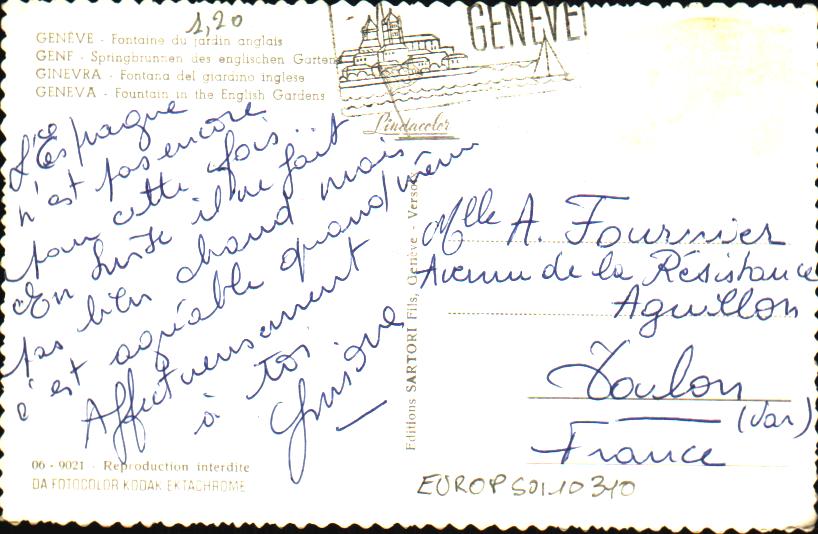 1,20
GENÈVE - Fontaine du jardin anglais
GENF - Springbrunnen des englischen Garten
GINEVRA - Fontana del giardino inglese
GENEVA - Fountain in the English Gardens
GENÈVE!
Lindacolor
L'Espagne
n'est pas encore
pour cette fois...
En Suisse il ne fait
pas bien chaud mais
c'est agréable quand même
Affectueusement
à toi
06 - 9021 - Reproduction interdite
DA FOTOCOLOR KODAK EKTACHROME
Editions SARTORI Fils, Genève - Verso
Mlle A. Fournier
Avenue de la Résistance
Aguillon
Toulon
(Var)
France
EUROPSUI10310